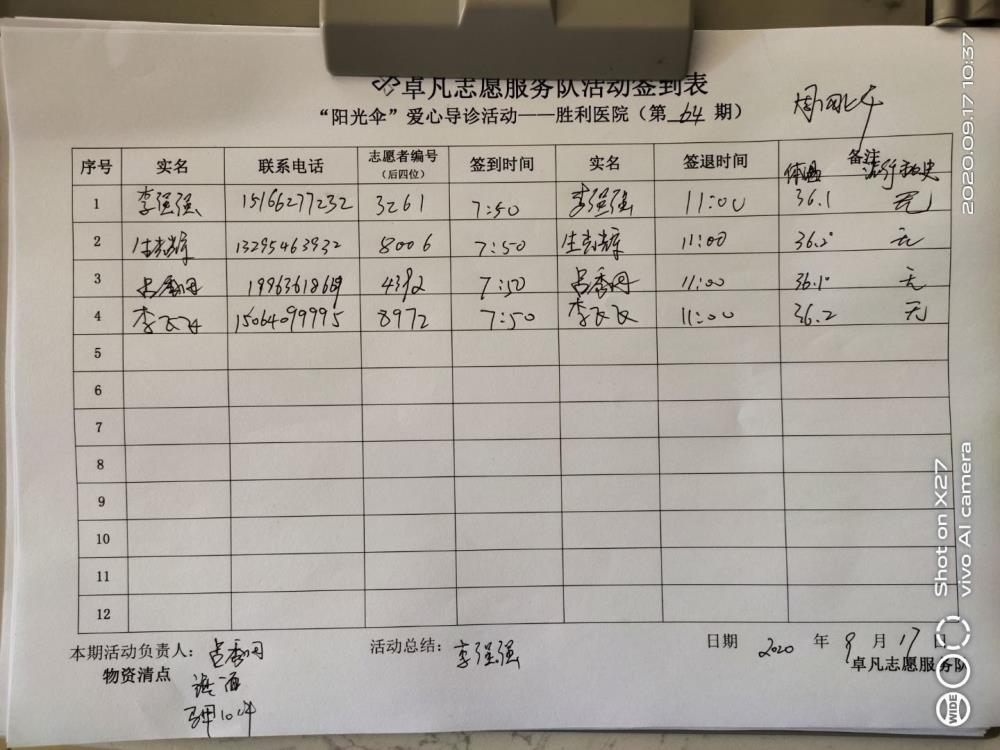 卓凡志愿服务队活动签到表
“阳光伞”爱心导诊活动——胜利医院（第 64 期）
周四上午
序号 实名 联系电话 志愿者编号（后四位） 签到时间 实名 签退时间 备注 体温 流行病史
1 李强强 15166277232 3261 7:50 李强强 11:00 36.1 无
2 13295463932 8006 7:50 11:00 36.2° 无
3 7:50 11:00 36.1° 无
4 李飞飞 15064099995 8972 7:50 李飞飞 11:00 36.2 无
5
6
7
8
9
10
11
12
本期活动负责人： 活动总结：李强强 日期 2020 年 9 月 17 日
物资清点 卓凡志愿服务队
2020.09.17 10:37
Shot on X27
vivo AI camera
WIDE